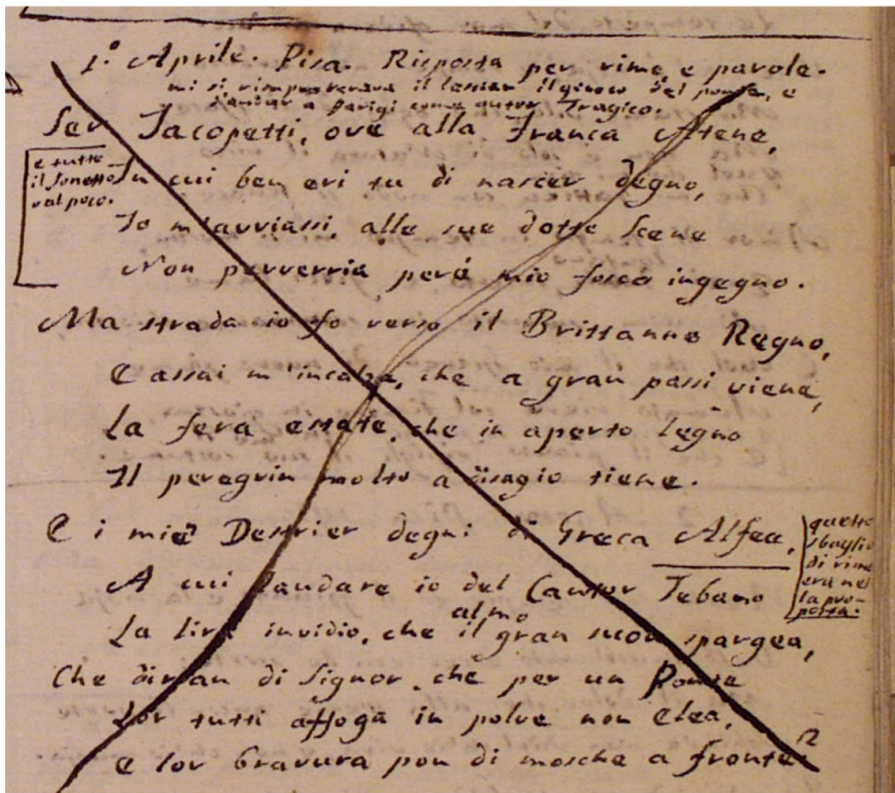 1.º Aprile. Pisa. Risposta per rime e parole.
mi si rimproverava il lasciar il giuoco del ponte, e
d'andar a Parigi come autor Tragico.
Ser Jacopetti, ove alla Franca Atene,
In cui ben eri tu di nascer degno,
e tutto
il sonetto
val poco.
Io m'avviassi, alle sue dotte Scene
Non perverria peró mio fosco ingegno.
Ma strada io fo verso il Brittanno Regno,
E assai m'incalza, che a gran passi viene,
La fera estate, che in aperto legno
Il peregrin molto a disagio tiene.
E i miei Destrier degni di Greca Alfea,
questo
sbaglio
di rime
era nel
la pro-
posta.
A cui laudare io del Cantor Tebano
La lira invidio, che il gran suon spargea,
almo
Che dirian di Signor, che per un Ponte
Lor tutti affoga in polve non Elea,
E lor bravura pon di mosche a fronte?